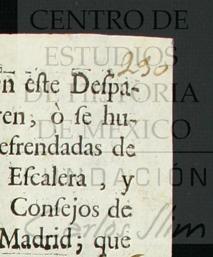 CENTRO DE
ESTUDIOS
230
n este Despa-
DE HISTORIA
ren, ò se hu-
DE MÉXICO
efrendadas de
Escalera, y
FUNDACIÓN
Consejos de
Carlos Slim
Madrid; que